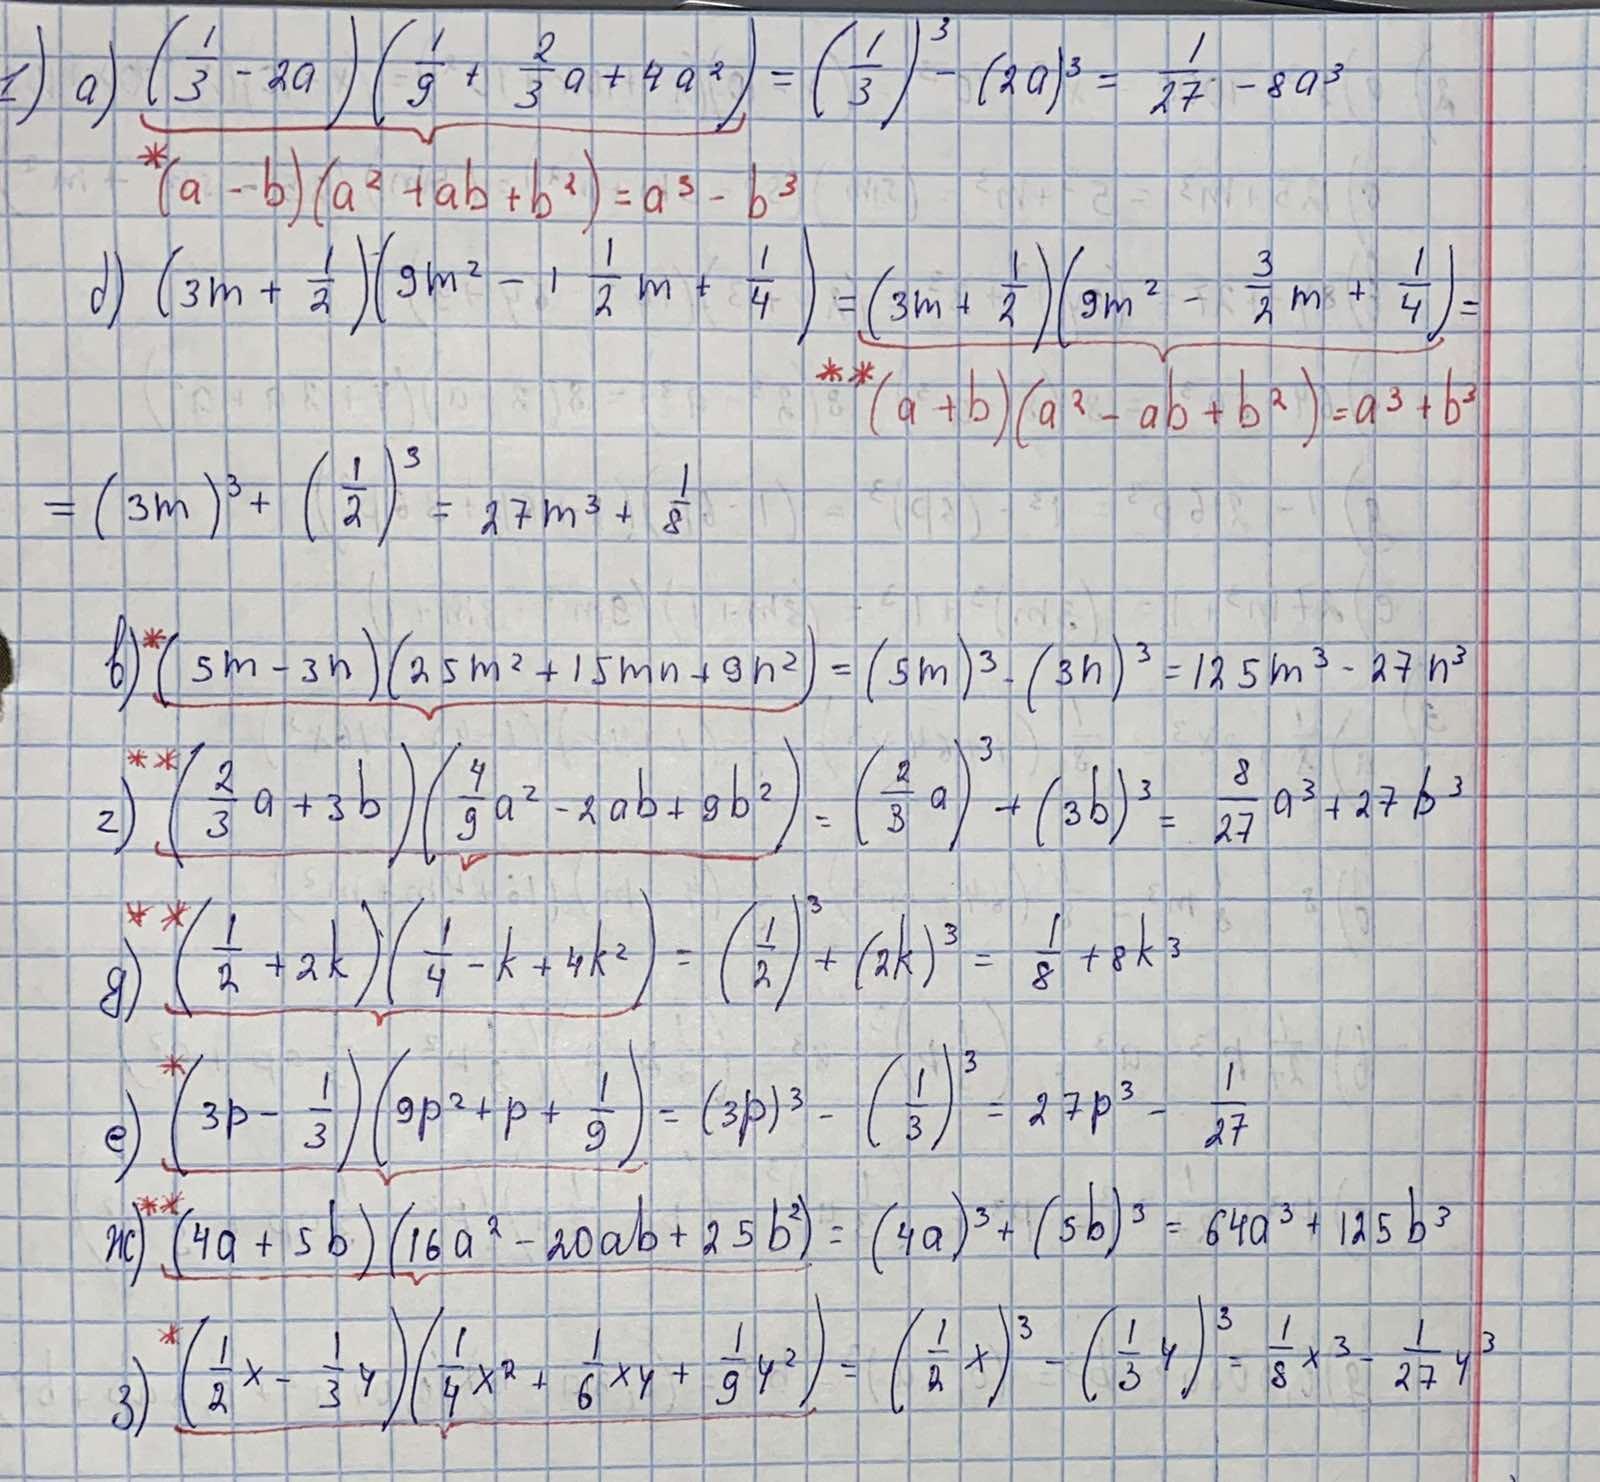 1) а) (1/3 - 2a)(1/9 + 2/3 a + 4a²) = (1/3)³ - (2a)³ = 1/27 - 8a³
*(a - b)(a² + ab + b²) = a³ - b³
б) (3m + 1/2)(9m² - 1 1/2 m + 1/4) = (3m + 1/2)(9m² - 3/2 m + 1/4) =
**(a + b)(a² - ab + b²) = a³ + b³
= (3m)³ + (1/2)³ = 27m³ + 1/8
в) *(5m - 3n)(25m² + 15mn + 9n²) = (5m)³ - (3n)³ = 125m³ - 27n³
г) **(2/3 a + 3b)(4/9 a² - 2ab + 9b²) = (2/3 a)³ + (3b)³ = 8/27 a³ + 27b³
д) **(1/2 + 2k)(1/4 - k + 4k²) = (1/2)³ + (2k)³ = 1/8 + 8k³
е) *(3p - 1/3)(9p² + p + 1/9) = (3p)³ - (1/3)³ = 27p³ - 1/27
ж) **(4a + 5b)(16a² - 20ab + 25b²) = (4a)³ + (5b)³ = 64a³ + 125b³
з) *(1/2 x - 1/3 y)(1/4 x² + 1/6 xy + 1/9 y²) = (1/2 x)³ - (1/3 y)³ = 1/8 x³ - 1/27 y³